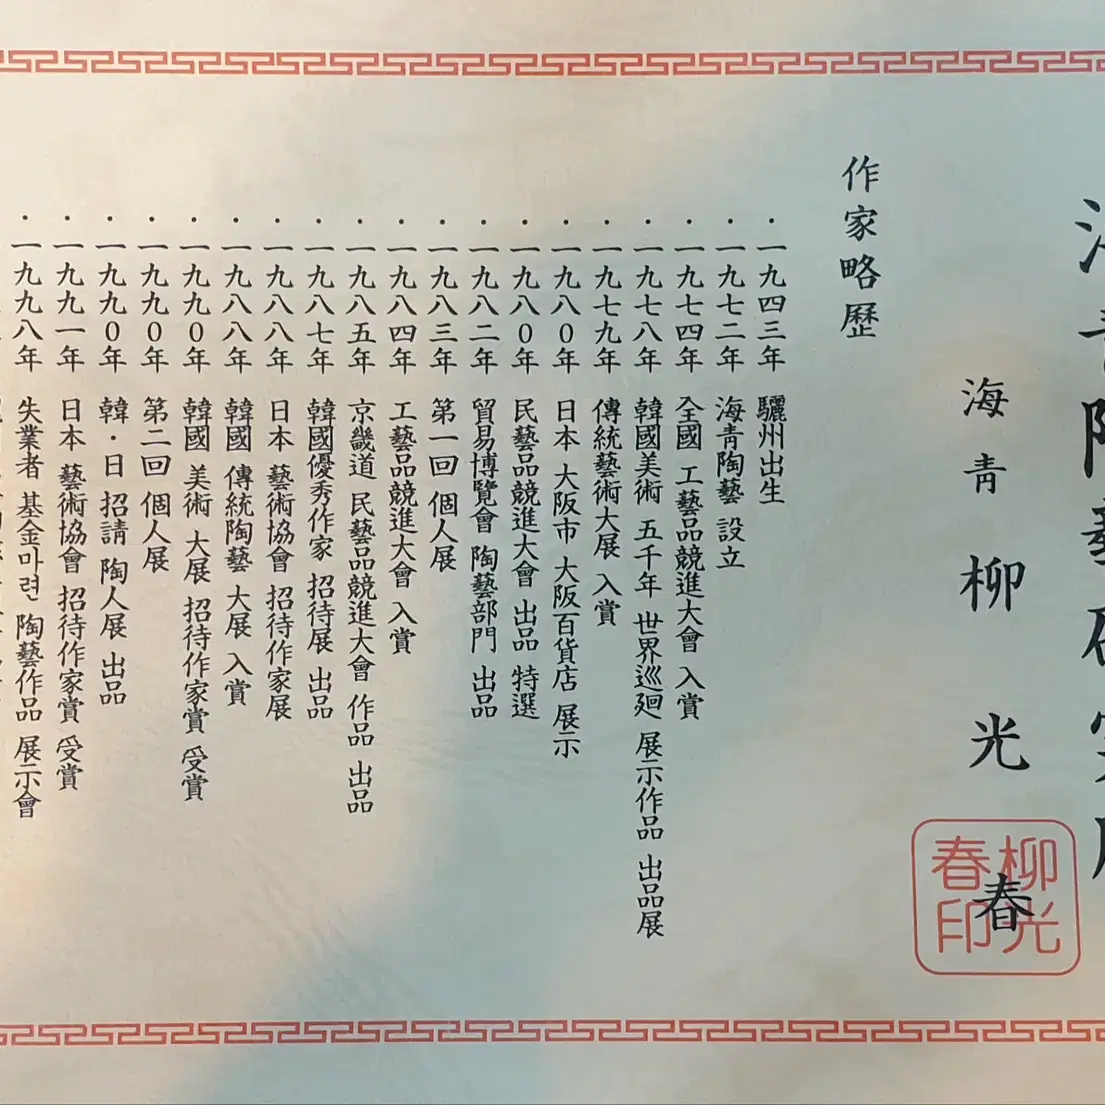 海靑 柳光春
柳光春印
作家略歷
· 一九四三年 驪州出生
· 一九七二年 海靑陶藝 設立
· 一九七四年 全國 工藝品競進大會 入賞
· 一九七八年 韓國美術 五千年 世界巡廻 展示作品 出品展
· 一九七九年 傳統藝術大展 入賞
· 一九八0年 日本 大阪市 大阪百貨店 展示
· 一九八0年 民藝品競進大會 出品 特選
· 一九八二年 貿易博覽會 陶藝部門 出品
· 一九八三年 第一回 個人展
· 一九八四年 工藝品競進大會 入賞
· 一九八五年 京畿道 民藝品競進大會 作品 出品
· 一九八七年 韓國優秀作家 招待展 出品
· 一九八八年 日本 藝術協會 招待作家展
· 一九八八年 韓國 傳統陶藝 大展 入賞
· 一九九0年 韓國 美術 大展 招待作家賞 受賞
· 一九九0年 第二回 個人展
· 一九九0年 韓·日 招請 陶人展 出品
· 一九九一年 日本 藝術協會 招待作家賞 受賞
· 一九九八年 失業者 基金마련 陶藝作品 展示會